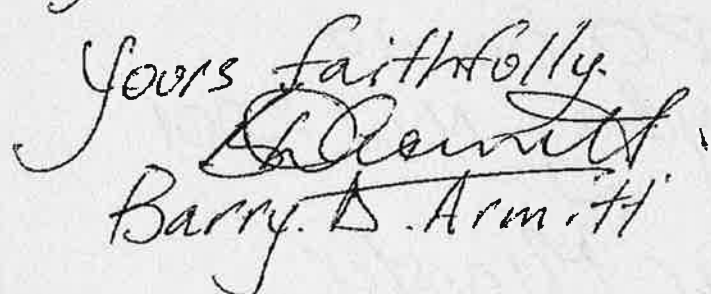 Yours faithfully.
Barry. D. Armitt